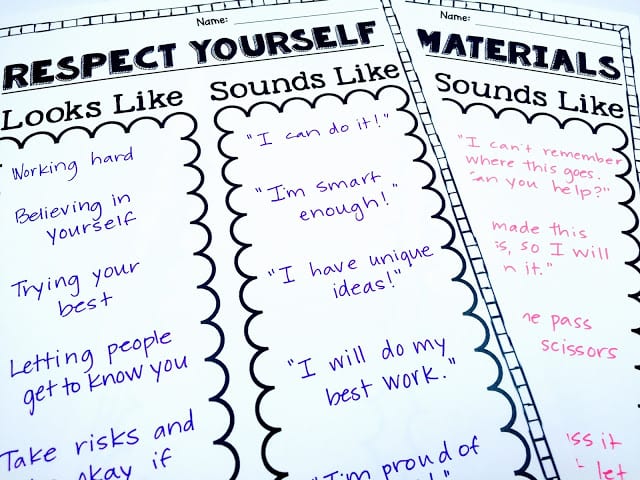 Name:
RESPECT YOURSELF
Looks Like
Working hard
Believing in
yourself
Trying your
best
Letting people
get to know you
Take risks and
okay if
Sounds Like
"I can do it!"
"I'm smart
enough!"
"I have unique
ideas!"
"I will do my
best work."
"I'm proud of
Name:
MATERIALS
Sounds Like
"I can't remember
where this goes.
Can you help?"
made this
, so I will
it."
pass
scissors
it
let